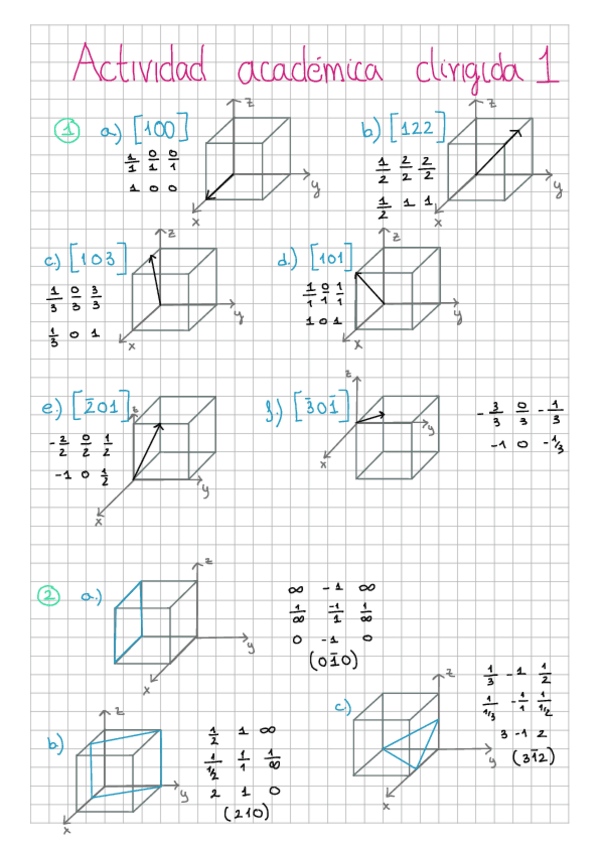 Actividad académica dirigida 1
1 a) [100]
1/1 0/1 0/1
1 0 0
z
y
x
b) [122]
1/2 2/2 2/2
1/2 1 1
z
y
x
c) [103]
1/3 0/3 3/3
1/3 0 1
z
y
x
d.) [101]
1/1 0/1 1/1
1 0 1
z
y
x
e.) [2̄01]
-2/2 0/2 1/2
-1 0 1/2
z
y
x
f.) [3̄01̄]
z
y
x
-3/3 0/3 -1/3
-1 0 -1/3
2 a.)
z
y
x
∞ -1 ∞
1/∞ -1/1 1/∞
0 -1 0
(01̄0)
b)
z
y
x
1/2 1 ∞
1/1/2 1/1 1/∞
2 1 0
(210)
c)
z
y
x
1/3 -1 1/2
1/1/3 -1/1 1/1/2
3 -1 2
(31̄2)